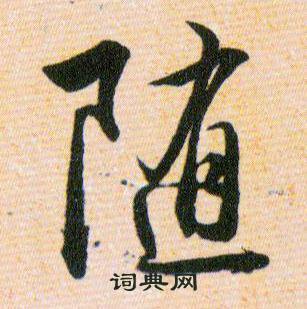 随
词典网